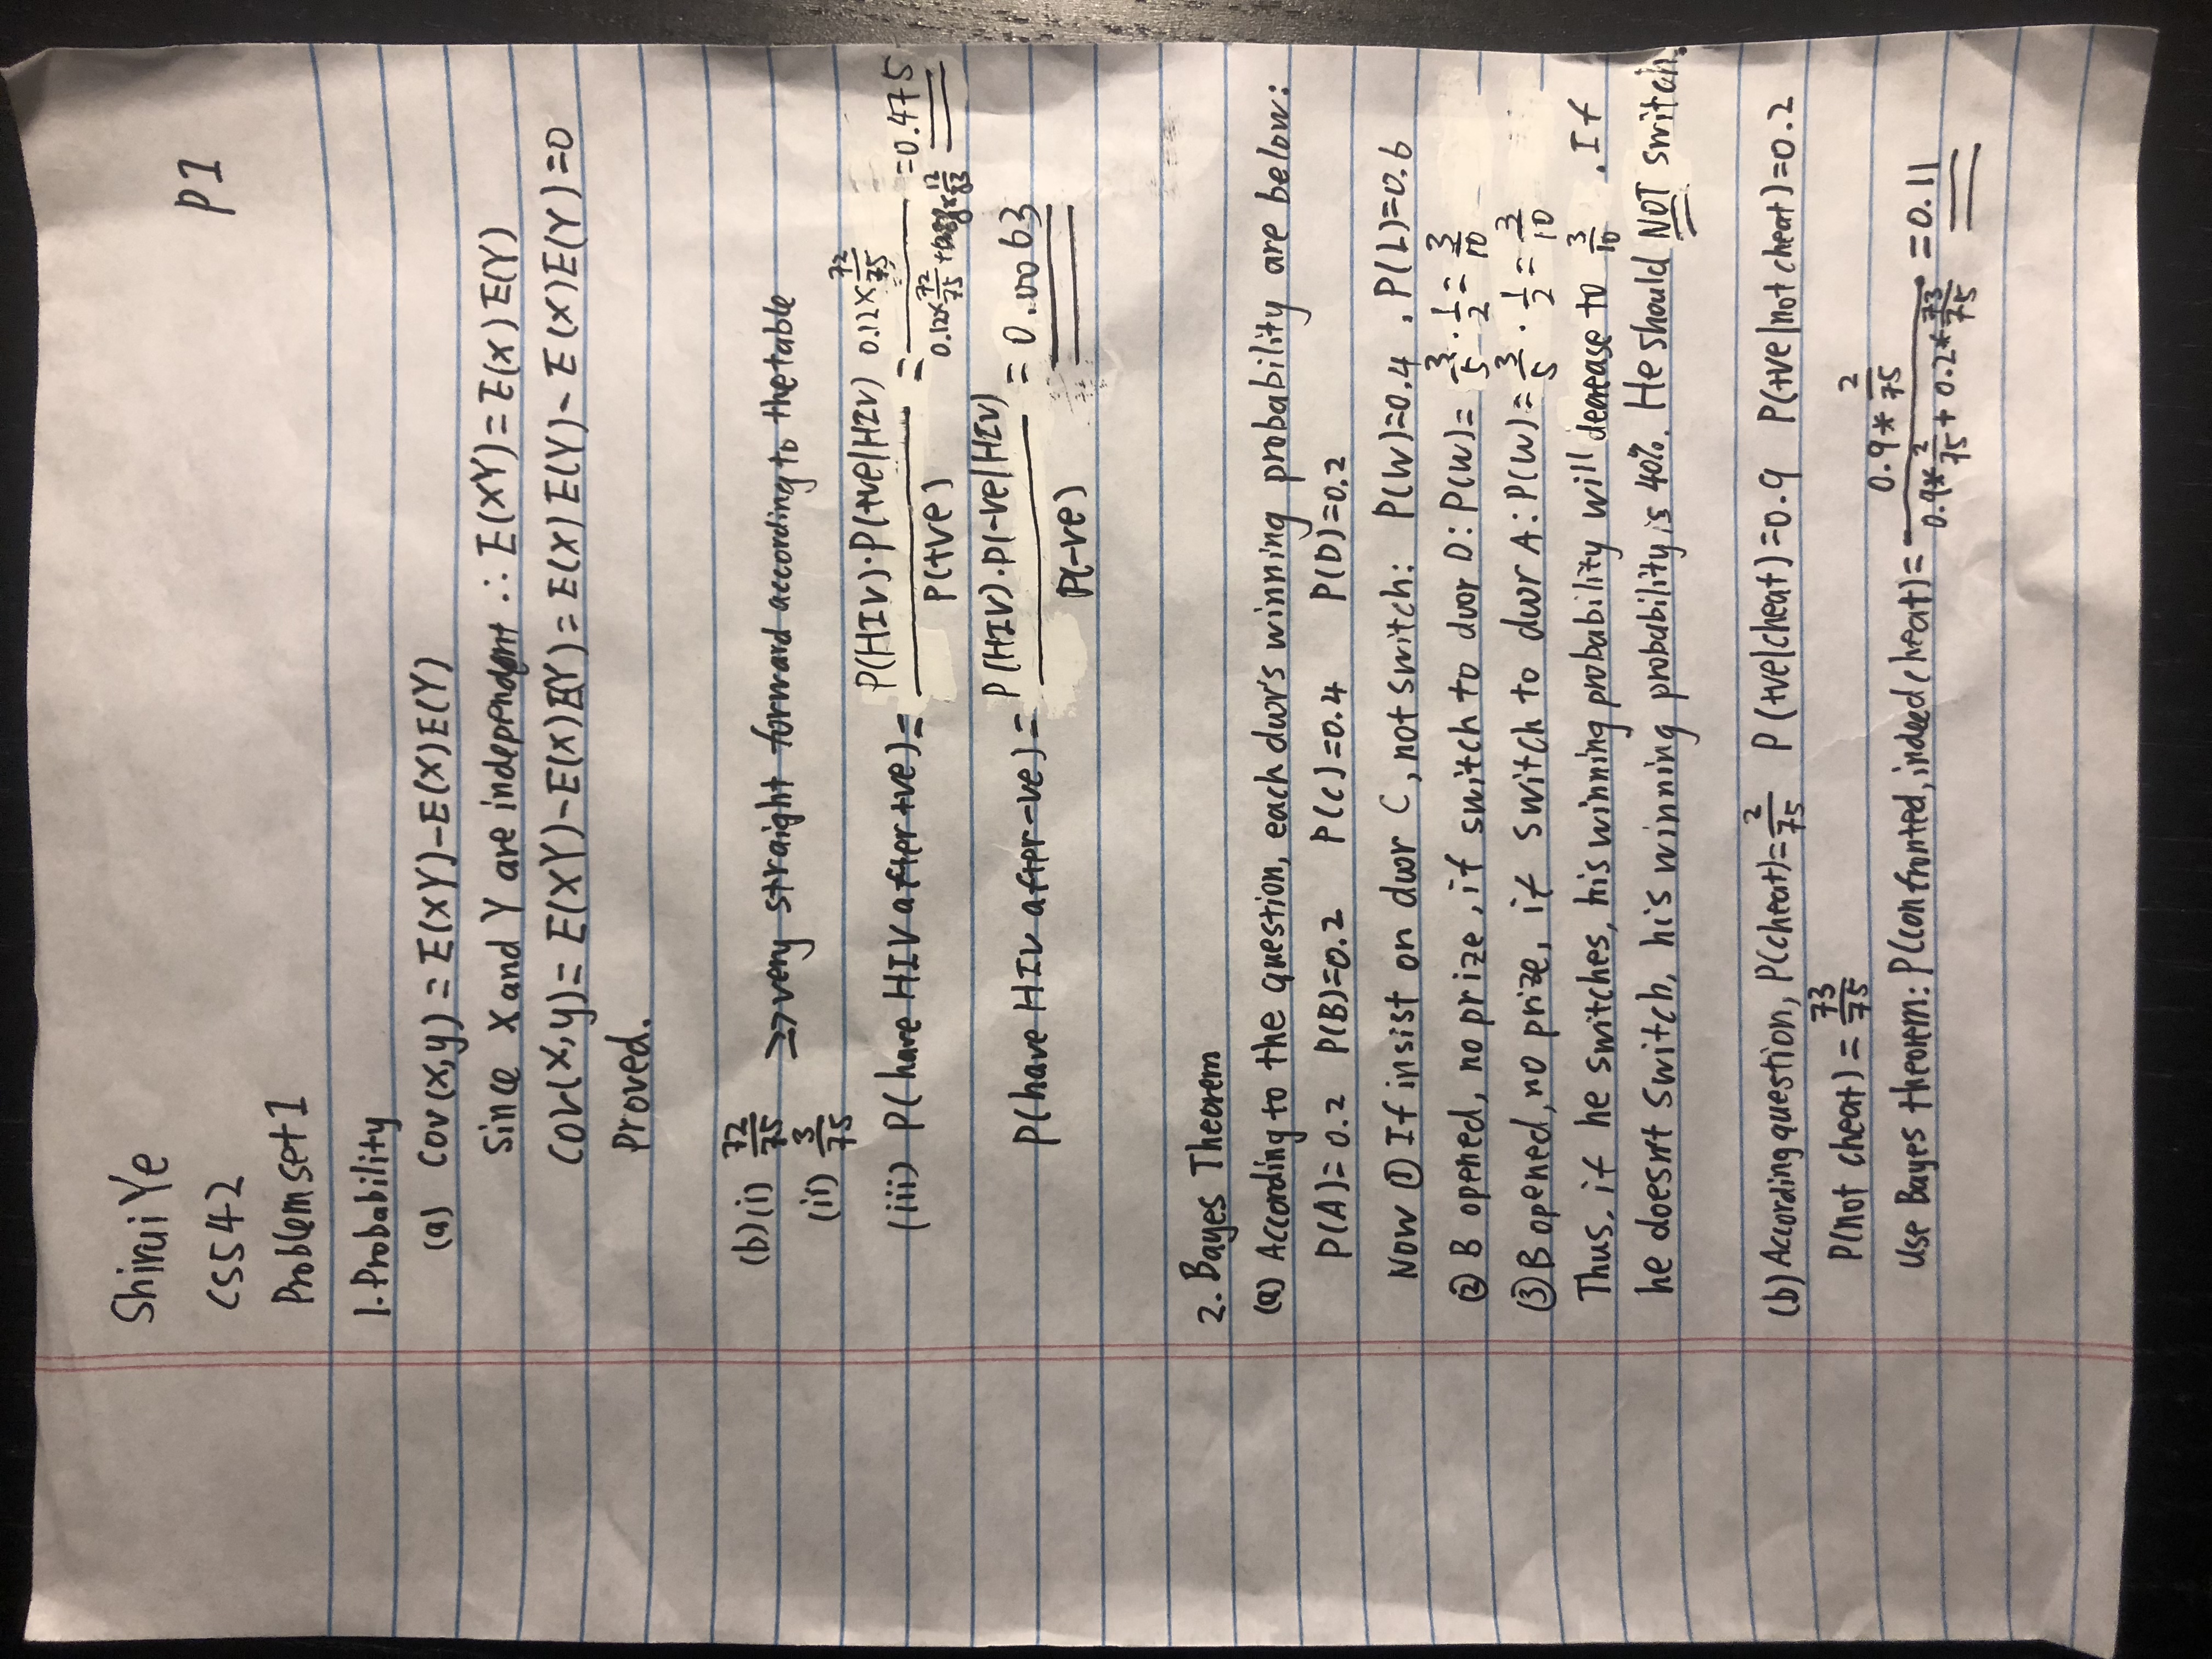 Shirui Ye
P1
CS542
Problem set 1
1. Probability
(a) Cov(x,y) = E(XY)-E(X)E(Y)
Since X and Y are independent ∴ E(XY)=E(X)E(Y)
Cov(X,y)= E(XY)-E(X)E(Y)= E(X)E(Y)- E(X)E(Y)=0
Proved.
(b)(i) 72/75
=> very straight forward according to the table
(ii) 3/75
(iii) P(have HIV after +ve)= P(HIV)·P(+ve|HIV)/P(+ve) = 0.12×72/75 / 0.12×72/75 + 0.88×12/83 =0.475
P(have HIV after -ve)= P(HIV).P(-ve|HIV)/P(-ve) = 0.0063
2. Bayes Theorem
(a) According to the question, each door's winning probability are below:
P(A)= 0.2 P(B)=0.2 P(C)=0.4 P(D)=0.2
Now ① If insist on door C, not switch: P(W)=0.4 , P(L)=0.6
② B opened, no prize, if switch to door D: P(W)= 3/5 · 1/2 = 3/10
③ B opened, no prize, if switch to door A: P(W)= 3/5 · 1/2 = 3/10
Thus, if he switches, his winning probability will decrease to 3/10 . If
he doesn't switch, his winning probability is 40%. He should NOT switch.
(b) According question, P(cheat)=2/75 P(+ve|cheat)=0.9 P(+ve|not cheat)=0.2
P(not cheat) = 73/75
Use Bayes theorem: P(confronted, indeed cheat)= 0.9*2/75 / 0.9*2/75 + 0.2*73/75 = 0.11